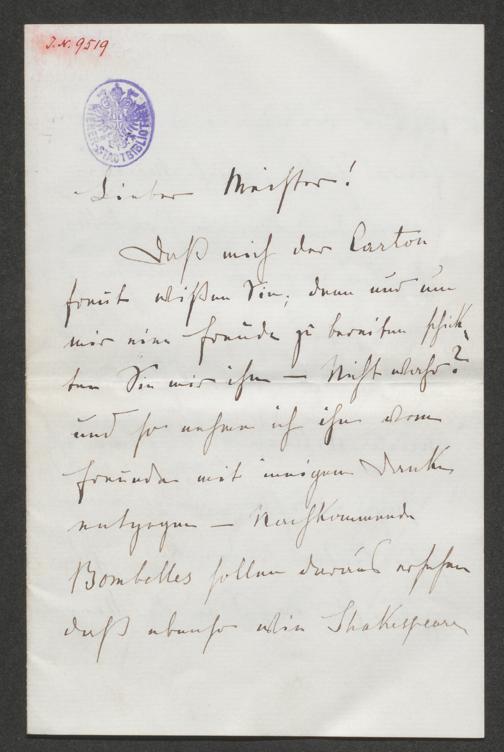 J.N. 9519
WIENER STADTBIBLIOTHEK
Lieber Meister!
Daß mich der Carton
freut wißen Sie, denn nur um
mir eine Freude zu bereiten schick-
ten Sie mir ihn – Nicht wahr?
und so nehme ich ihn vom
Freunde mit innigem Danke
entgegen – Nachkommende
Bombelles sollen daraus ersehen
daß ebenso wie Shakespeare